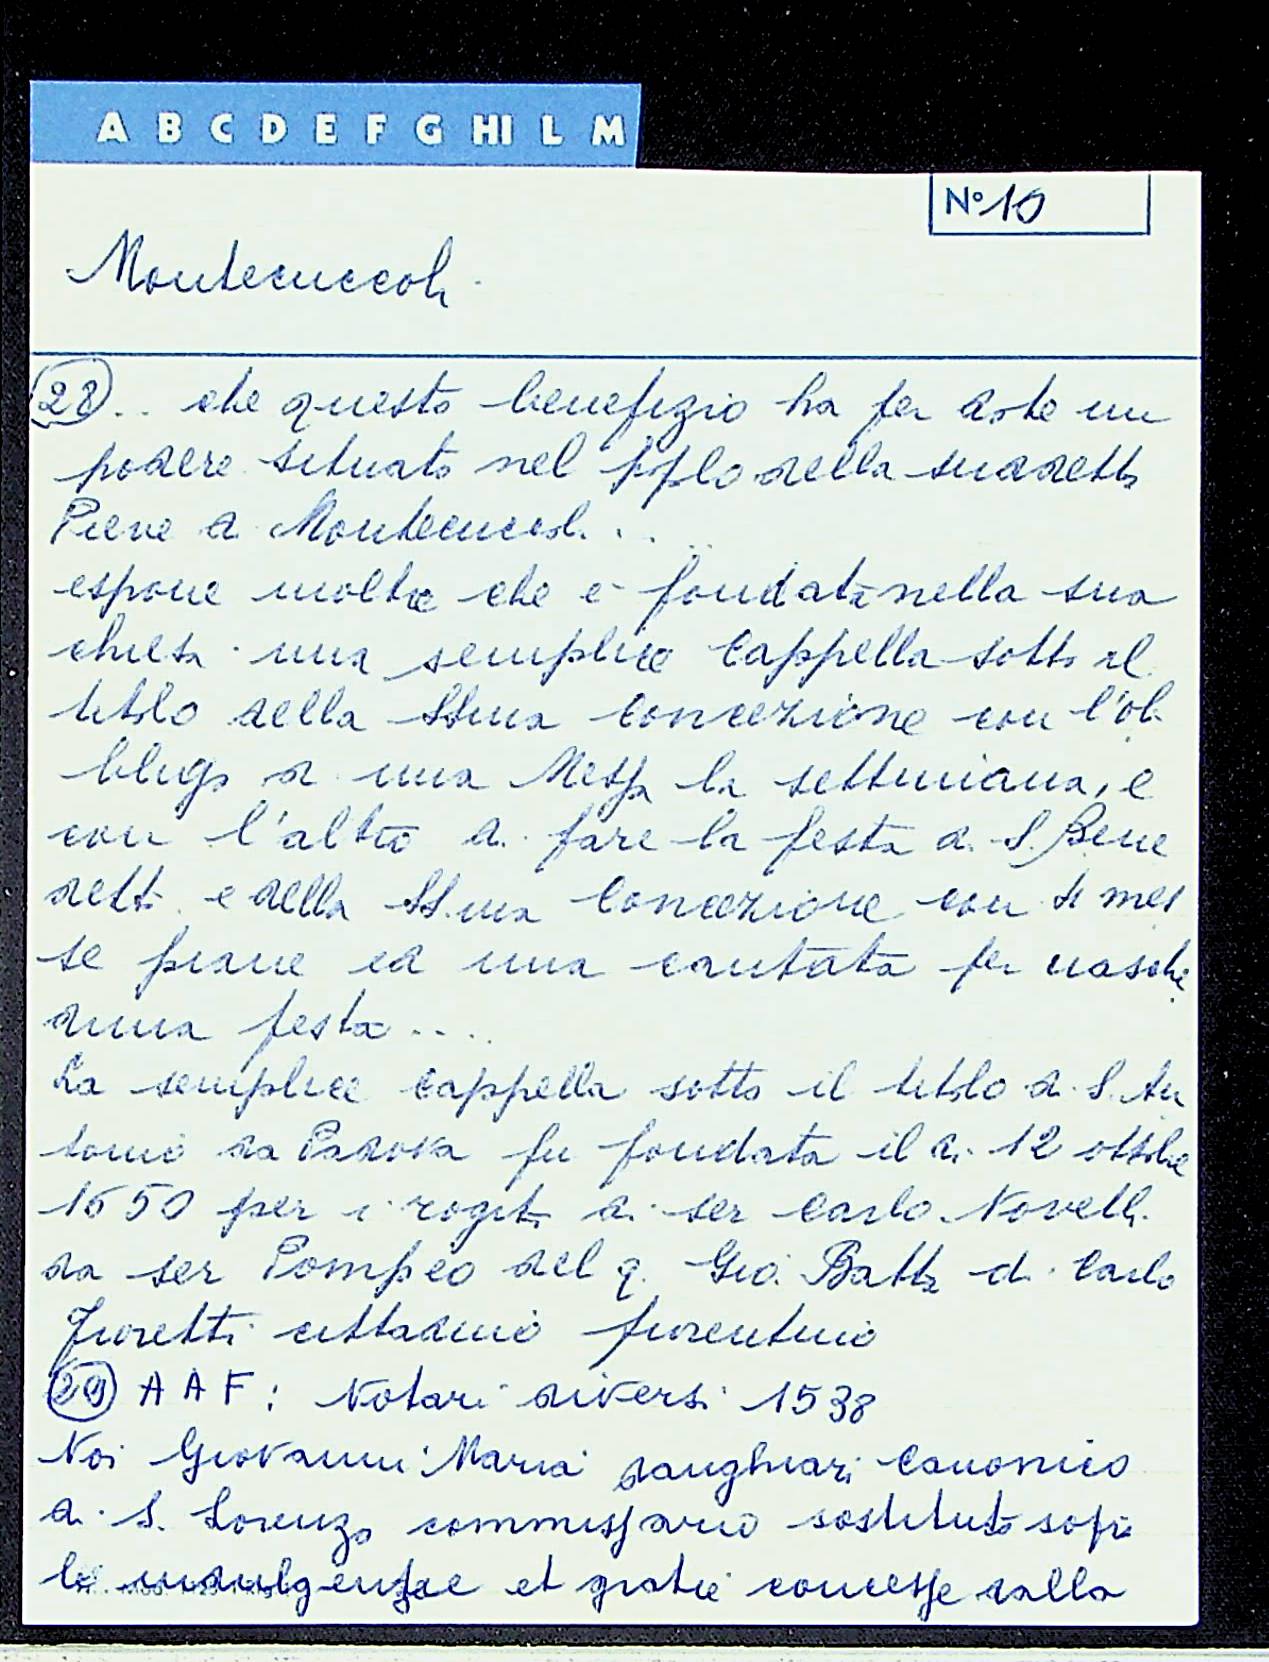 A B C D E F G HI L M
N° 10
Montecuccoli
(28).. che questo benefizio ha per dote un
podere situato nel pplo della suddetta
Pieve di Montecuccoli...
espone inoltre che è fondata nella sua
chiesa una semplice Cappella sotto il
titolo della SSma Concezione con l'ob
bligo di una Messa la settimana, e
con l'altro di fare la festa di S. Bene
detto e della SS.ma Concezione con 4 mes
se piane ed una cantata per
duna festa....
La semplice cappella sotto il titolo di S. An
tonio da Padova fu fondata il dì 12 ottobre
1650 per i rogiti di ser Carlo Novelli
da ser Pompeo del q. Gio. Batta di Carlo
Fioretti cittadino fiorentino
(29) AAF: Notari diversi 1538
Noi Giovanni Maria canonico
di S. Lorenzo commissario sostituto sopra
le indulgenzae et gratie concesse dalla